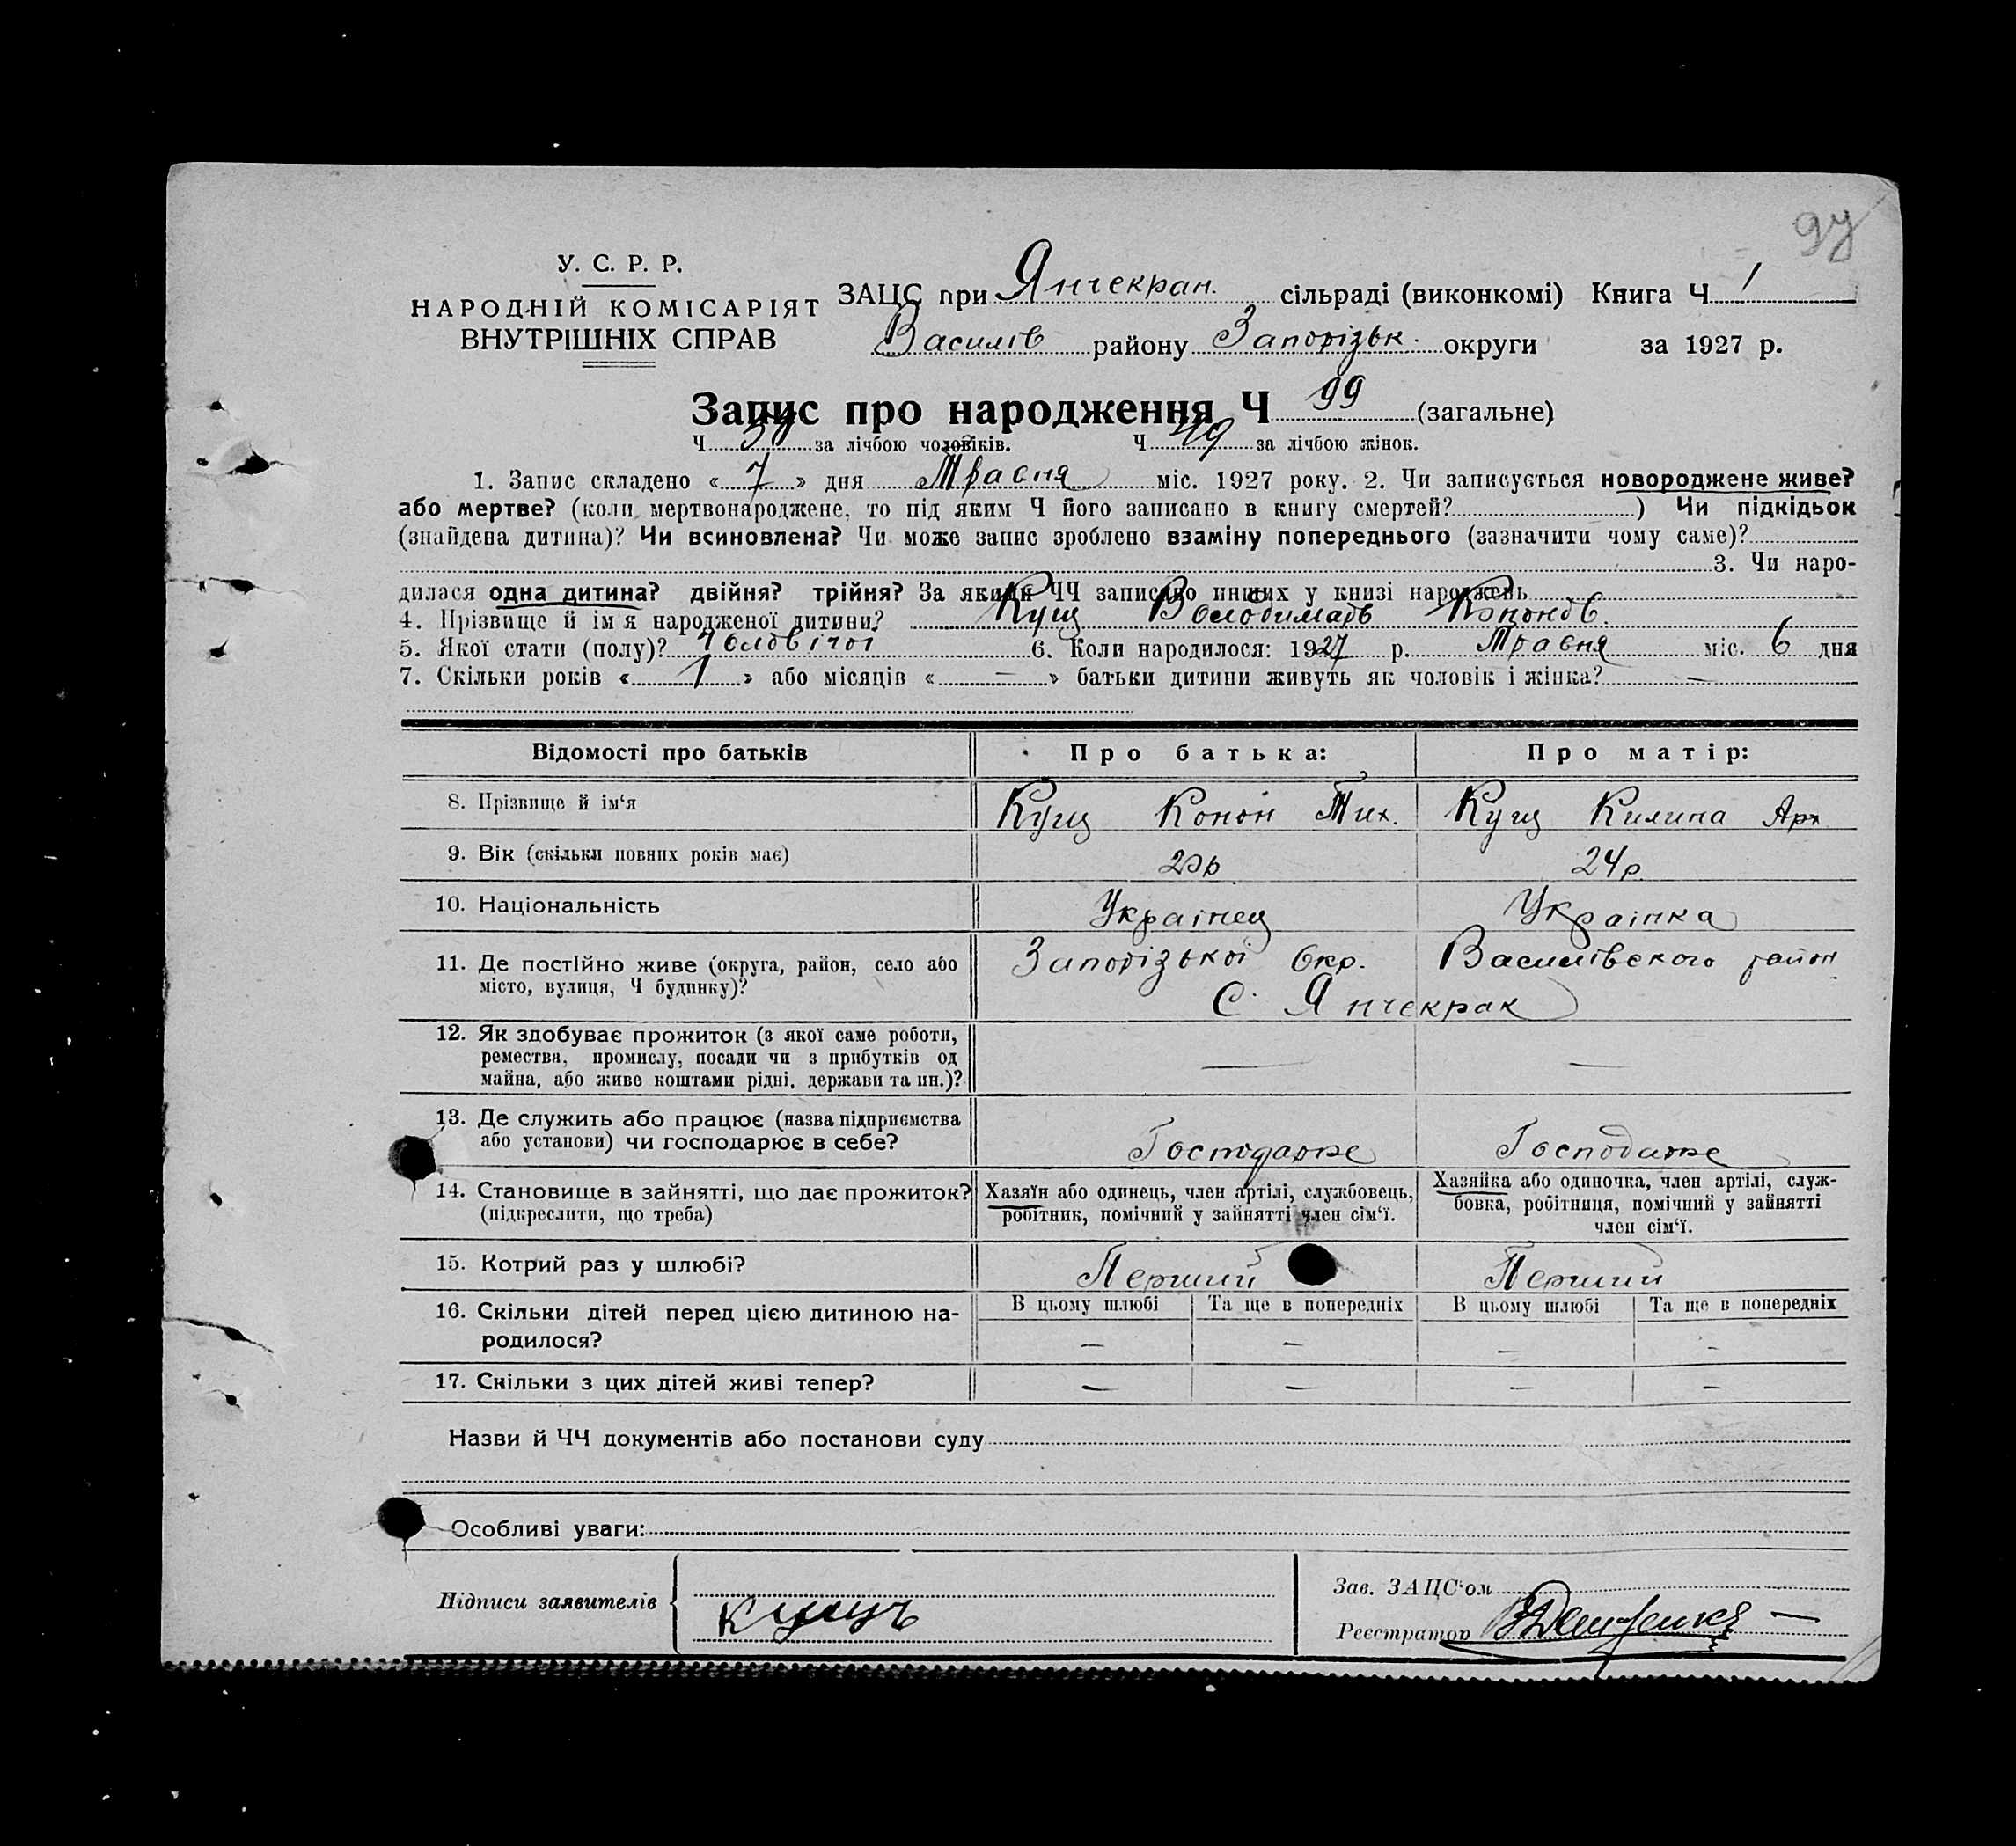 97
У. С. Р. Р.
НАРОДНІЙ КОМІСАРІЯТ
ВНУТРІШНІХ СПРАВ
ЗАЦС при Янчекран. сільраді (виконкомі) Книга Ч 1
Василів району Запорізьк. округи за 1927 р.
Запис про народження Ч 99 (загальне)
Ч за лічбою чоловіків. Ч 49 за лічбою жінок.
1. Запис складено «7» дня Травня міс. 1927 року. 2. Чи записується новороджене живе?
або мертве? (коли мертвонароджене, то під яким Ч його записано в книгу смертей? ) Чи підкідьок
(знайдена дитина)? Чи всиновлена? Чи може запис зроблено взаміну попереднього (зазначити чому саме)?
3. Чи наро-
дилася одна дитина? двійня? трійня? За якими ЧЧ записано инших у книзі народжень
4. Прізвище й ім'я народженої дитини? Кущ Володимарь Кононов.
5. Якої стати (полу)? Чоловічої 6. Коли народилося: 1927 р. Травня міс. 6 дня
7. Скільки років «1» або місяців «—» батьки дитини живуть як чоловік і жінка? —
Відомості про батьків Про батька: Про матір:
8. Прізвище й ім'я Кущ Конон Тих. Кущ Килина Арх
9. Вік (скільки повних років має) 24р.
10. Національність Українец Українка
11. Де постійно живе (округа, район, село або Запорізької Окр. Василівского район
місто, вулиця, Ч будинку)? С. Янчекрак
12. Як здобуває прожиток (з якої саме роботи,
ремества, промислу, посади чи з прибутків од — —
майна, або живе коштами рідні, держави та ин.)?
13. Де служить або працює (назва підприємства
або установи) чи господарює в себе? Господарює Господарює
14. Становище в зайнятті, що дає прожиток? Хазяїн або одинець, член артілі, службовець, Хазяйка або одиночка, член артілі, служ-
(підкреслити, що треба) робітник, помічний у зайнятті член сім'ї. бовка, робітниця, помічний у зайнятті
член сім'ї.
15. Котрий раз у шлюбі? Перший Перший
16. Скільки дітей перед цією дитиною на- В цьому шлюбі Та ще в попередніх В цьому шлюбі Та ще в попередніх
родилося? — — — -
17. Скільки з цих дітей живі тепер? — — — —
Назви й ЧЧ документів або постанови суду
Особливі уваги:
Підписи заявителів Кущъ
Зав. ЗАЦС'ом
Реєстратор